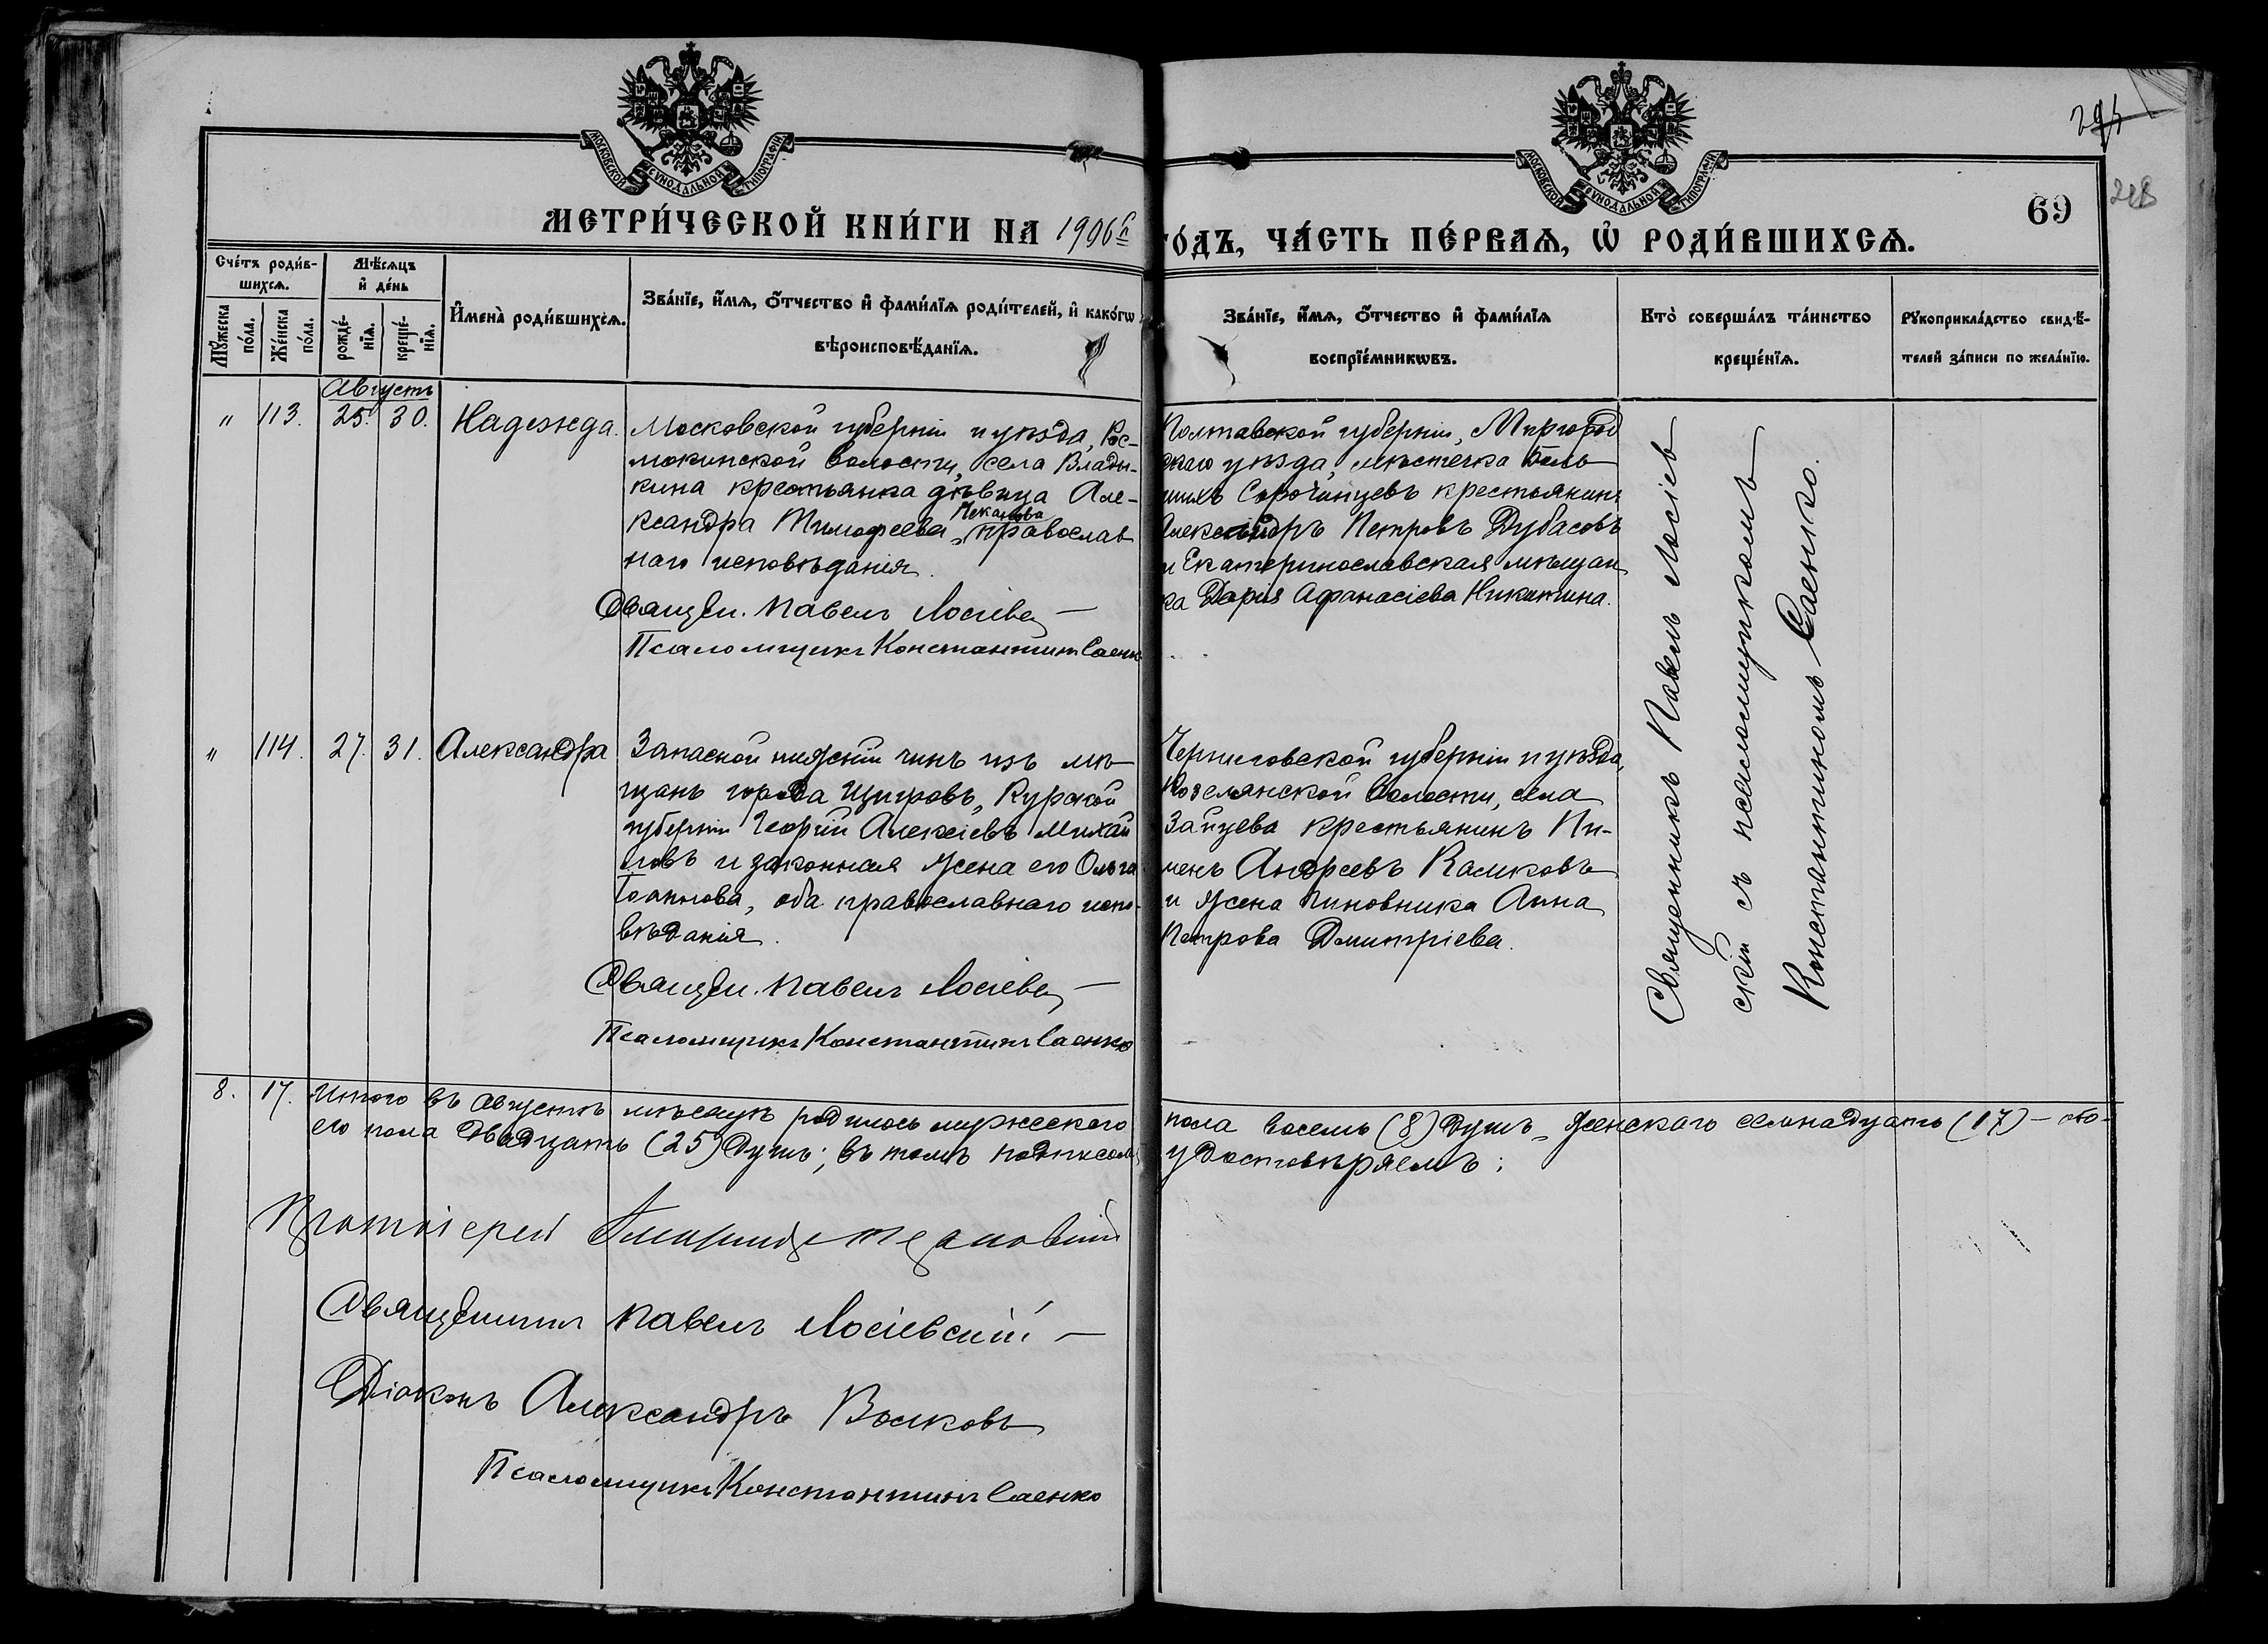 МОСКОВСКОЙ СѴНОДАЛЬНОЙ ТИПОГРАФІИ
МОСКОВСКОЙ СѴНОДАЛЬНОЙ ТИПОГРАФІИ
69
МЕТРИ́ЧЕСКОЙ КНИ́ГИ НА 1906й
ГО́ДЪ, ЧА́СТЬ ПЕ́РВАѦ, Ѽ РОДИ́ВШИХСѦ.
Сче́тъ роди́в-
шихсѧ.
Мꙋжеска по́ла.
Же́нска по́ла.
Мѣ́сѧцъ
и҆ де́нь
рожде́-
нїѧ.
креще́-
нїѧ.
И҆мена̀ роди́вшихсѧ.
Зва́нїе, и҆́мѧ, ѻ҆́тчество и҆ фами́лїѧ роди́телей, и҆ како́гѡ
вѣроисповѣ́данїѧ.
Зва́нїе, и҆́мѧ, ѻ҆́тчество и҆ фами́лїѧ
воспрїе́мникѡвъ.
Кто̀ соверша́лъ та́инство
креще́нїѧ.
Рꙋкоприкла́дство свидѣ́-
телей за́писи по жела́нїю.
Августъ
" 113. 25. 30. Надежда.
Московской губерніи и уѣзда, Рос-
мокинской волости, села Влады-
кина крестьянка дѣвица Але-
Чекалова
ксандра Тимофеева, православ
наго исповѣданія.
Священ. Павелъ Лосіев
Псаломщикъ Константинъ Саенко
Полтавской губерніи, Миргород
скаго уѣзда, мѣстечка Боль
шихъ Сорочинцевъ крестьянинъ
Александръ Петровъ Дубасовъ
и Екатеринославская мѣщан
ка Дарія Афанасіева Никитина.
" 114. 27. 31. Александра
Запасной нижній чинъ изъ мѣ
щанъ города Щигровъ, Курской
губерніи Георгій Алексіевъ Михай
ловъ и законная жена его Ольга
Іоаннова, оба православнаго испо-
вѣданія.
Священ. Павелъ Лосіев
Псаломщикъ Константинъ Саенко
Черниговской губерніи и уѣзда,
Козлянской волости, села
Зайцева крестьянинъ Пи-
менъ Андреевъ Калиновъ
и жена чиновника Анна
Петрова Дмитріева.
Священникъ Павелъ Лосіев
скій съ псаломщикомъ
Константиномъ Саенко.
8. 17. Итого въ Августѣ мѣсяцѣ родилось мужескаго
пола восемь (8) душъ, женскаго семнадцать (17) – обо-
его пола двадцать (25) душъ; въ томъ подписомъ
удостовѣряемъ:
Протоіерей
Священникъ Павелъ Лосіевскій
Діаконъ Александръ Волковъ
Псаломщикъ Константинъ Саенко